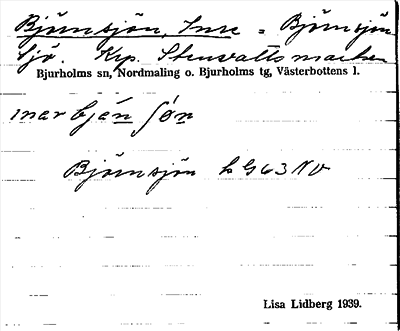 Björnsjön, Inre = Björnsjön
sjö. Krp. Stensvattsmarken
Bjurholms sn, Nordmaling o. Bjurholms tg, Västerbottens l.
inar bjǽn ʃøn
Björnsjön L G63 NV
Lisa Lidberg 1939.